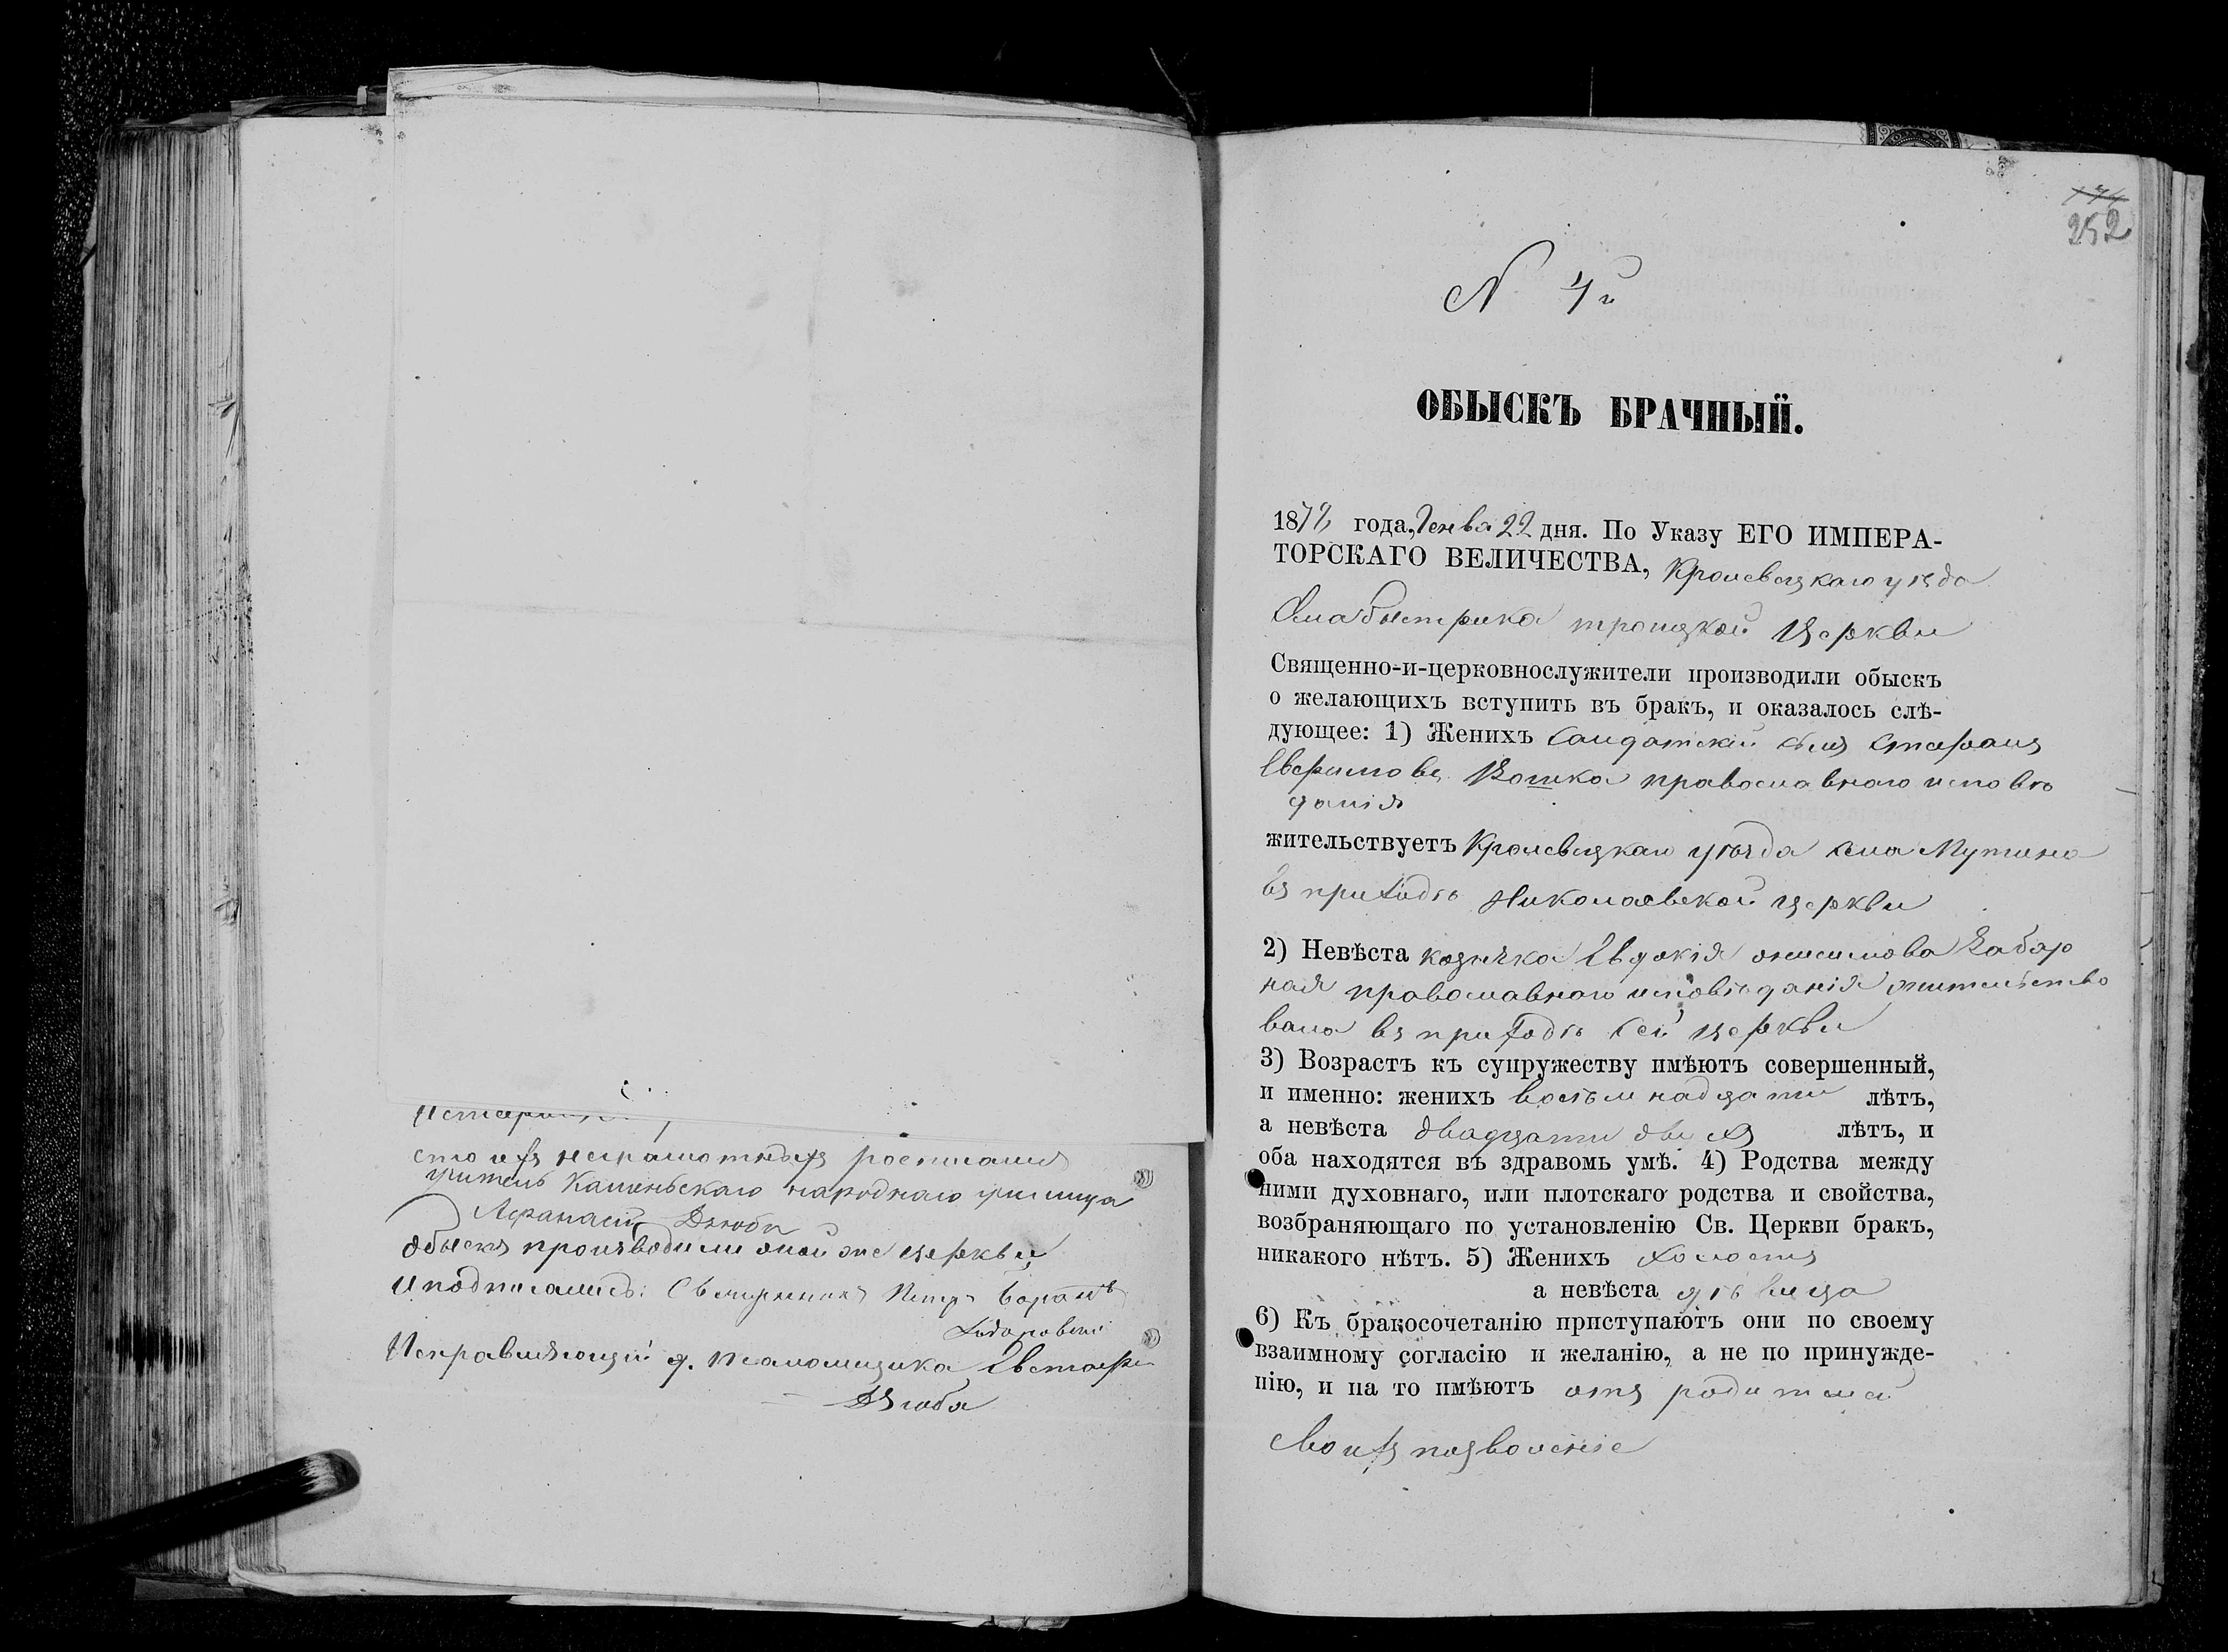 сто ихъ неграмотныхъ росписался
учитель Каменьскаго народнаго училища
Афанасій Дзюба
Обыскъ производили оной же церкви
и подписались: Священникъ Петръ
Исправляющій д. псаломщика Евстафій
Дзюба
252
N 4й
ОБЫСКЪ БРАЧНЫЙ.
187 года, Генва 22 дня. По Указу ЕГО ИМПЕРА-
ТОРСКАГО ВЕЛИЧЕСТВА, Кролевецкаго уѣзда
Села Быстрика троицкой церкви
Священно-и-церковнослужители производили обыскъ
о желающихъ вступить въ бракъ, и оказалось слѣ-
дующее: 1) Женихъ Салдатскій сынъ Стефанъ
Евфимовъ Кошка православнаго исповѣ
данія
жительствуетъ Кролевецкаго уѣзда села Мутина
въ приходѣ Николаевской церкви
2) Невѣста козачка Евдокія онисимова
ная православнаго исповѣданія жительство
вала въ приходѣ сей церкви
3) Возрастъ къ супружеству имѣютъ совершенный,
и именно: женихъ восьмнадцати лѣтъ,
а невѣста двадцати двухъ лѣтъ, и
оба находятся въ здравомъ умѣ. 4) Родства между
ними духовнаго, или плотскаго родства и свойства,
возбраняющаго по установленію Св. Церкви бракъ,
никакого нѣтъ. 5) Женихъ холостъ
а невѣста дѣвица
6) Къ бракосочетанію приступаютъ они по своему
взаимному согласію и желанію, а не по принужде-
нію, и на то имѣютъ отъ родителей
своихъ позволеніе